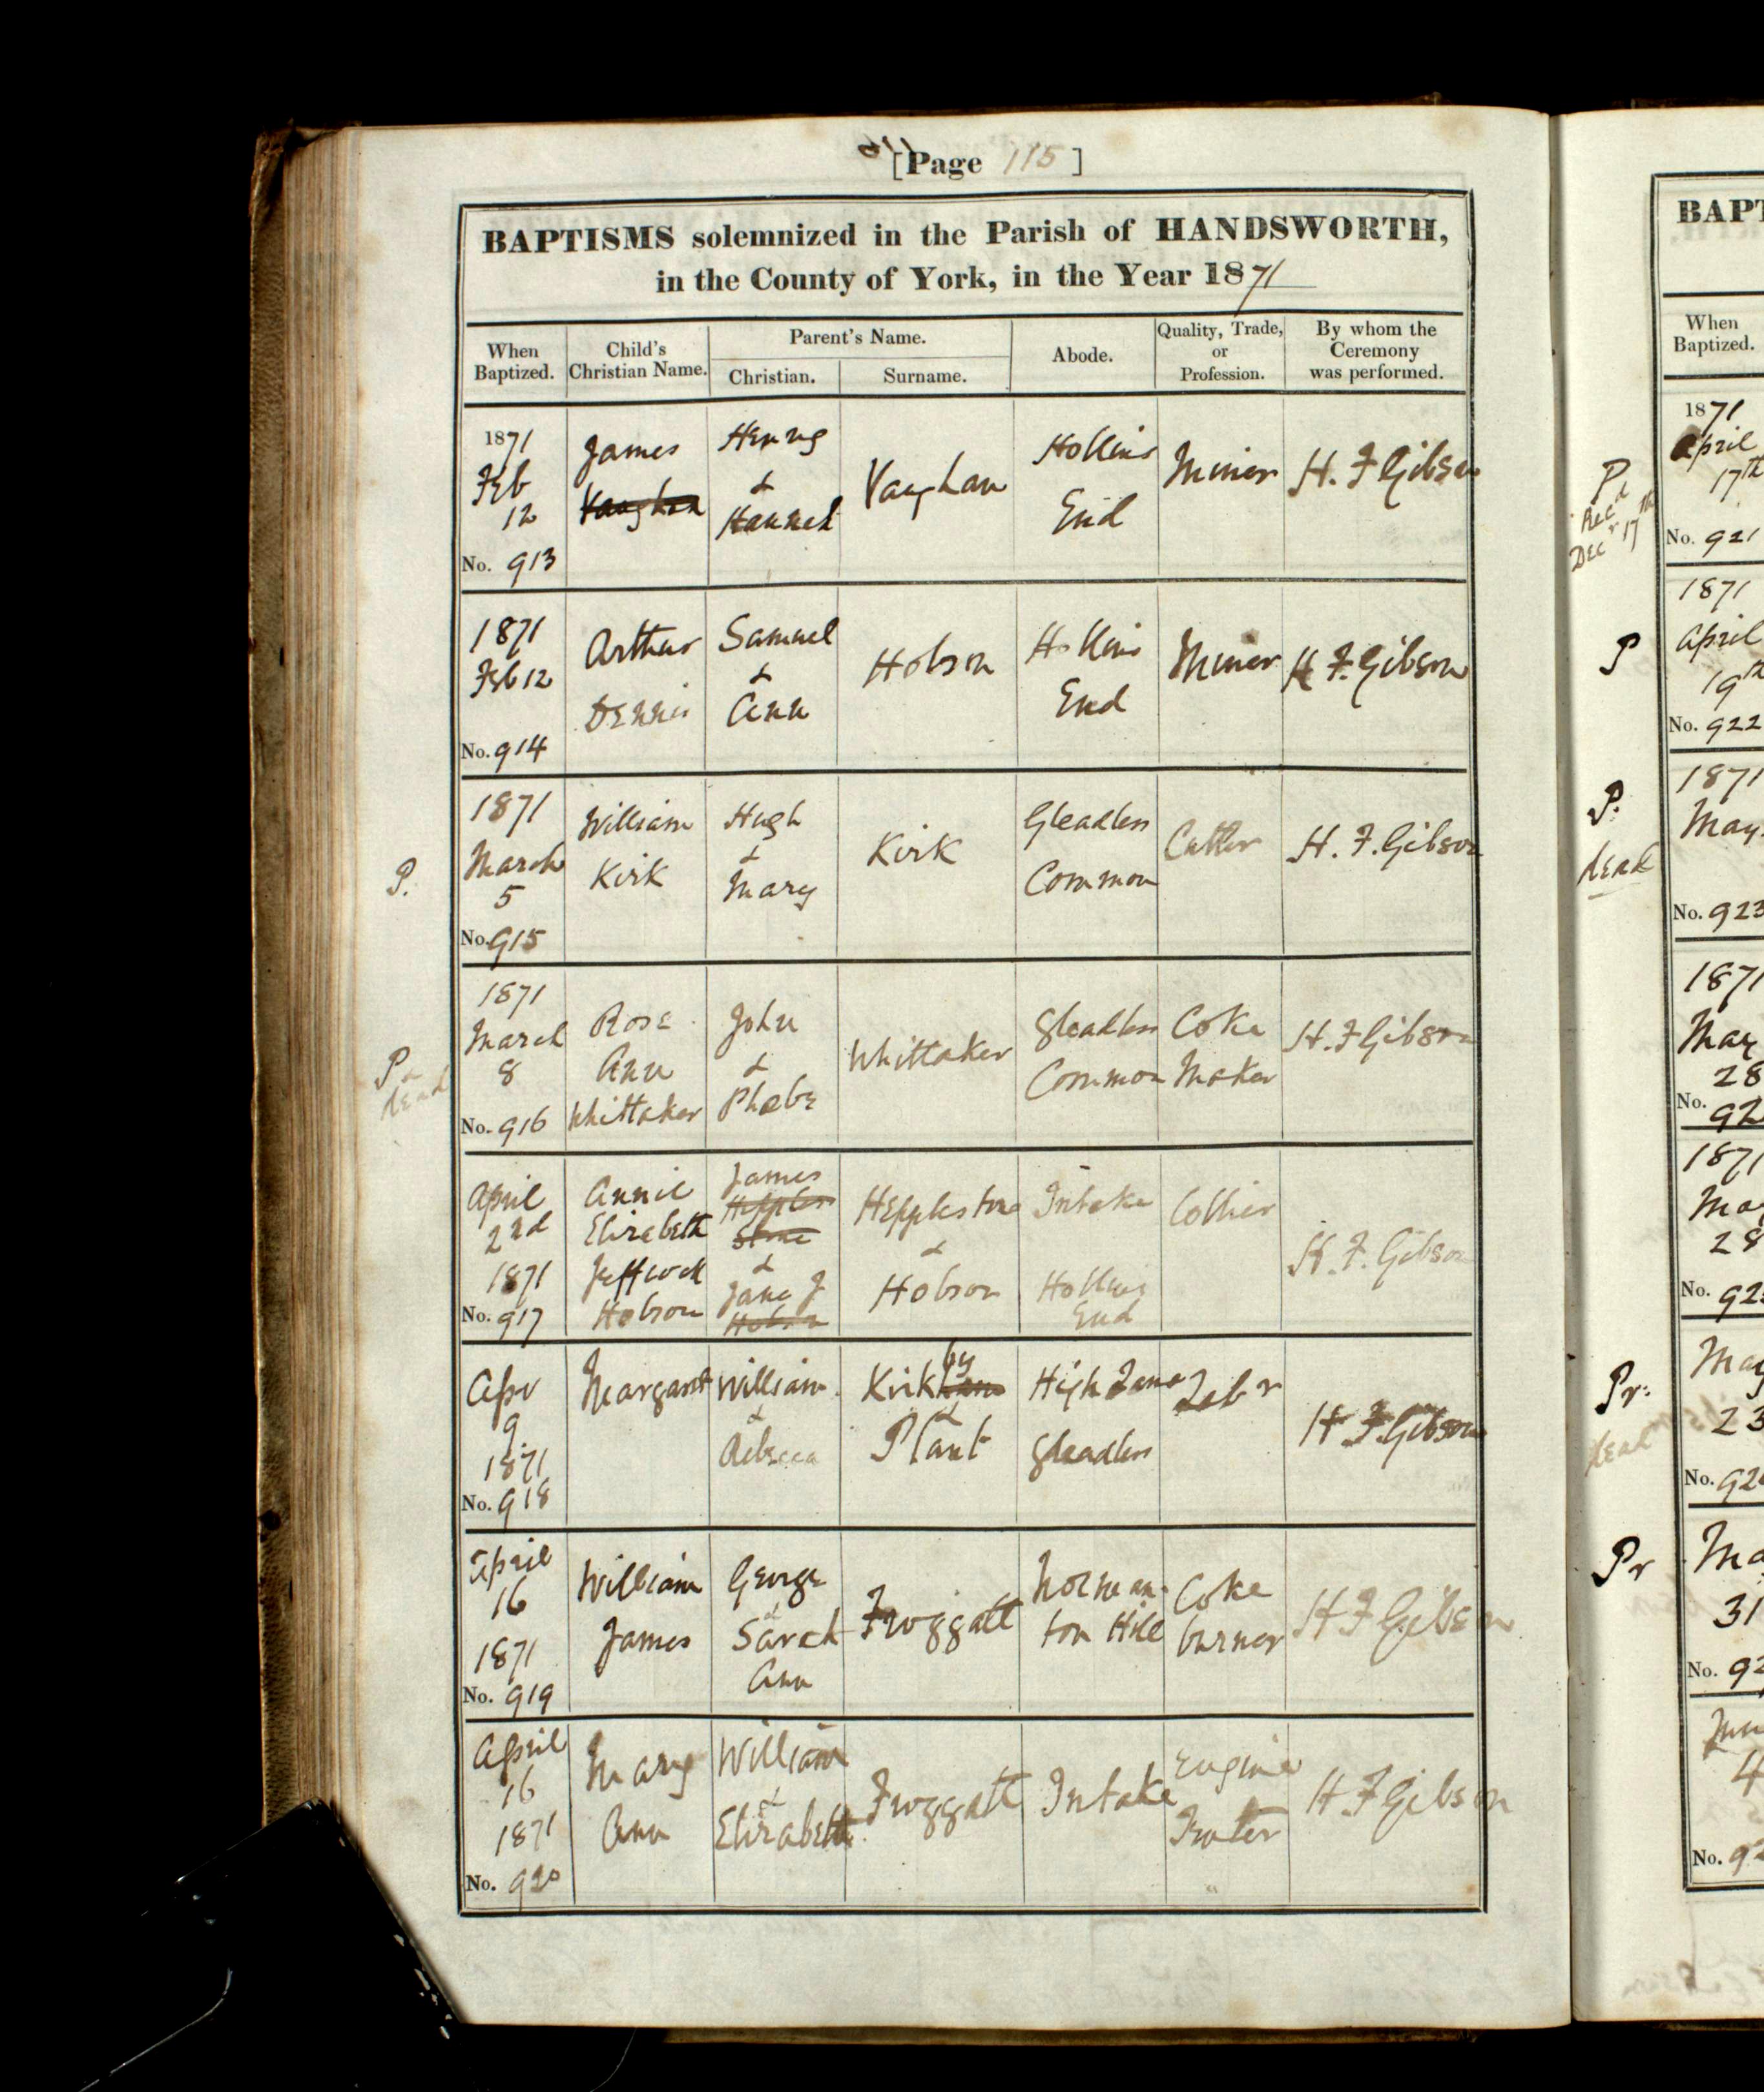 [Page 115]
BAPTISMS solemnized in the Parish of HANDSWORTH,
in the County of York, in the Year 1871
When Baptized.
Child's Christian Name.
Parent's Name.
Christian.
Surname.
Abode.
Quality, Trade, or Profession.
By whom the Ceremony was performed.
1871
Feb
12
No. 913
James
Vaughan
Henry
&
Hannah
Vaughan
Hollins
End
Miner
H. F Gibson
1871
Feb 12
No. 914
Arthur
Dennis
Samuel
&
Ann
Hobson
Hollins
End
Miner
H F. Gibson
P.
1871
March
5
No. 915
William
Kirk
Hugh
&
Mary
Kirk
Gleadless
Common
Cutler
H. F. Gibson
P
&
dead
1871
March
8
No. 916
Rose
Ann
Whittaker
John
&
Phoebe
Whittaker
Gleadless
Common
Coke
Maker
H. F Gibson
April
2nd
1871
No. 917
Annie
Elizabeth
Jeffcock
Hobson
James
Hepples
stone
&
Jane J
Hobson
Hepplestone
&
Hobson
Intake
Hollins
End
Collier
H. F. Gibson
Apr
9
1871
No. 918
Margaret
William
&
Rebecca
by
Kirkham
&
Plant
High Lane
Gleadless
Labr
H F. Gibson
April
16
1871
No. 919
William
James
George
&
Sarah
Ann
Froggatt
Norman-
ton Hill
Coke
burner
H F Gibson
April
16
1871
No. 920
Mary
Ann
William
&
Elizabeth
Froggatt
Intake
Engine
H. F Gibson
BAPT
When
Baptized.
P
Recd
Decr 17th
1871
April
17th
No. 921
P
1871
April
19th
No. 922
P.
dead
1871
May
No. 923
1871
May
28
No.
92
1871
May
28
No. 92
Pr:
dead
May
23
No. 92
Pr
Ma
31
No. 92
4
No. 92